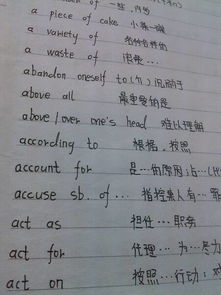 of 一些，
a piece of cake 小菜一碟
a variety of 各种各样的
a waste of 浪费…
abandon oneself to (介) 沉溺于
above all 最重要的是
above / over one's head 难以理解
according to 根据，按照
account for 是…的原因；占…
accuse sb. of … 指控某人有…罪
act as 担任…职务
act for 代理…为…尽力
act on 按照…行动；对